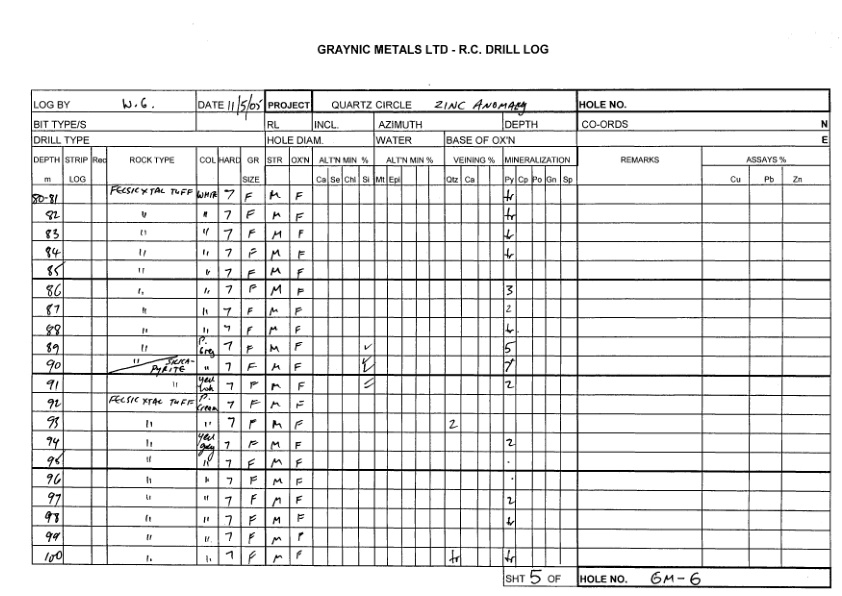 GRAYNIC METALS LTD - R.C. DRILL LOG
LOG BY W.G. DATE 11/5/05 PROJECT QUARTZ CIRCLE ZINC ANOMALY HOLE NO.
BIT TYPE/S RL INCL. AZIMUTH DEPTH CO-ORDS N
DRILL TYPE HOLE DIAM. WATER BASE OF OX'N E
DEPTH STRIP Rec ROCK TYPE COL HARD GR STR OX'N ALT'N MIN % ALT'N MIN % VEINING % MINERALIZATION REMARKS ASSAYS %
m LOG SIZE Ca Se Chl Si Mt Epi Qtz Ca Py Cp Po Gn Sp Cu Pb Zn
80-81 FELSIC XTAL TUFF WHITE 7 F M F tr
82 " " 7 F M F tr
83 " " 7 F M F tr
84 " " 7 F M F tr
85 " " 7 F M F
86 " " 7 F M F 3
87 " " 7 F M F 2
88 " " 7 F M F tr
89 " P. Grey 7 F M F ✓ 5
90 " SILICA-PYRITE " 7 F M F 7
91 " 7 F M F 2
92 FELSIC XTAL TUFF P. Cream 7 F M F
93 " " 7 F M F 2
94 " yell grey 7 F M F 2
95 " " 7 F M F .
96 " " 7 F M F .
97 " " 7 F M F 2
98 " " 7 F M F tr
99 " " 7 F M F
100 " " 7 F M F tr tr
SHT 5 OF HOLE NO. GM-6